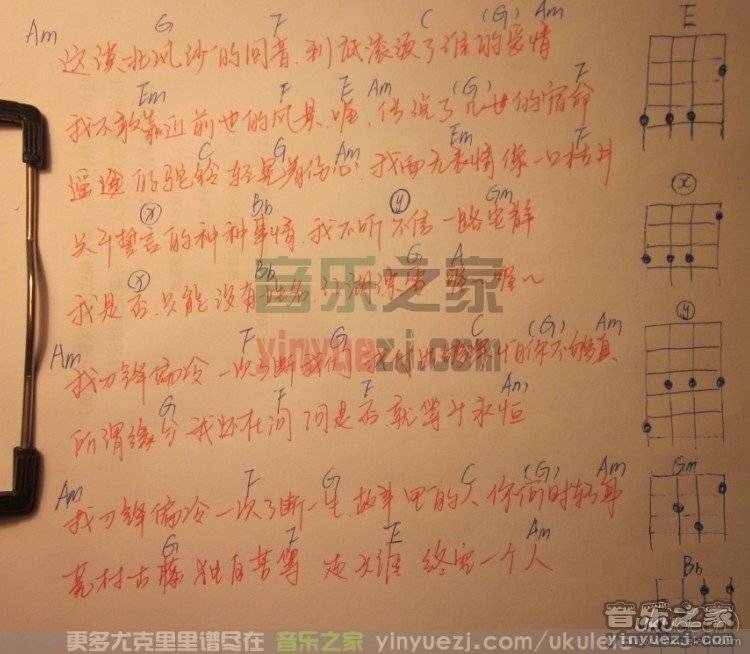 Am G F C (G) Am
E
这漠北风沙的回音，到底滚烫了谁的爱情
Em F E Am (G) F
我不敢靠近前世的风景，喔，传说了几世的宿命
C G Am Em F
遥远的驼铃 轻晃着伤心，我面无表情像一口枯井
ⓧ Bb ⓨ Gm
ⓧ
关于誓言的种种事情，我不听不信一路安静
ⓧ Bb G A
我是否只能没有姓名
音乐之家
xinyuezj.com
ⓨ
Am F G C (G) Am
我刀锋偏冷 一次了断
G F F Am
所谓缘分 我还在问 问是否就等于永恒
Gm
Am F G C (G) Am
我刀锋偏冷 一次了断一生，故事里的人 你何时转身
G F E Am
荒村古藤 独自苦等 走天涯 终究一个人
Bb
音乐之家
yinyuezj.com
更多尤克里里谱尽在 音乐之家 yinyuezj.com/ukulele